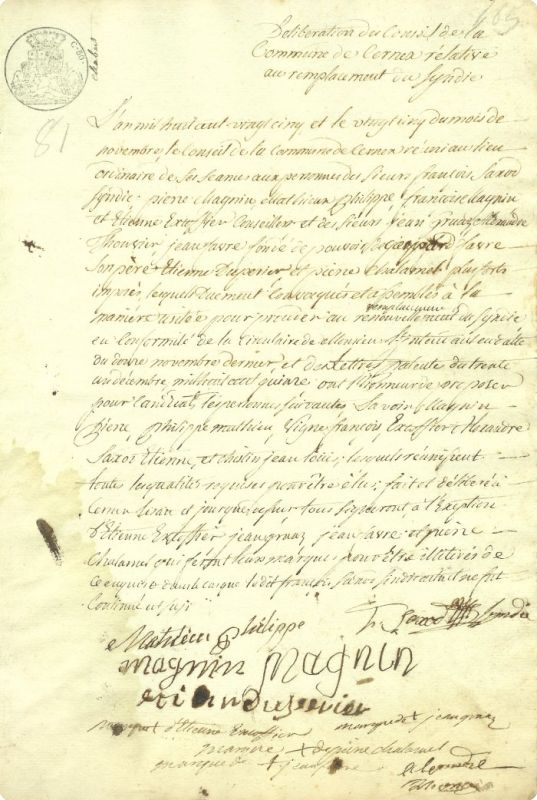 165
Deliberation du Conseil de la
Commune de Cernex rélative
au remplacement du Syndic
C. 80
81
L'an mil huit cent vingt cinq et le vingt cinq du mois de
novembre, le Conseil de la Commune de Cernex réuni au lieu
ordinaire de ses séances aux personnes des Sieurs françois Saxod
Syndic, pierre Magnin Mathieux philippe françois Magnin
et Etienne Excoffier Conseillers et des sieurs jean
Thousier jean favre fondé de pouvoir de gaspard favre
son péré Etienne Duperier et piérre Chalamet plus forts
imposés, lesquels duement Convoqués et assemblés à la
manière usitée pour procéder au renouvellement du Syndic
remplacement
en Conformité de la Circulaire de Monsieur
du douze novembre dernier, et des Lettres patente du trente
un décembre, mil huit cent quinze ont l'honneur de proposer
pour Candidats les personnes suivantes Savoir Magnin
pierre, philippe mathieu, Vigne françois, Excoffier Alexandre
Saxod Etienne, et jean louis; lesquels réunissent
toute les qualités requises pour être élus; fait et déliberé à
Cernex l'an et jour que dessus tous signeront à l'Exeption
d'Etienne Excoffier jean jean favre et pierre
Chalamet qui feront leurs marques pour être illitérés de
ce enquis et dans le cas que le dit françois Saxod Sindic actuel ne fut
Continué
Mathieu philippe
F. Saxod Syndic
magnin magnin
etiendu perier
marque d'Etienne Excoffier
marque de + jean
marque + de pierre chalamet
marque de + jean favre